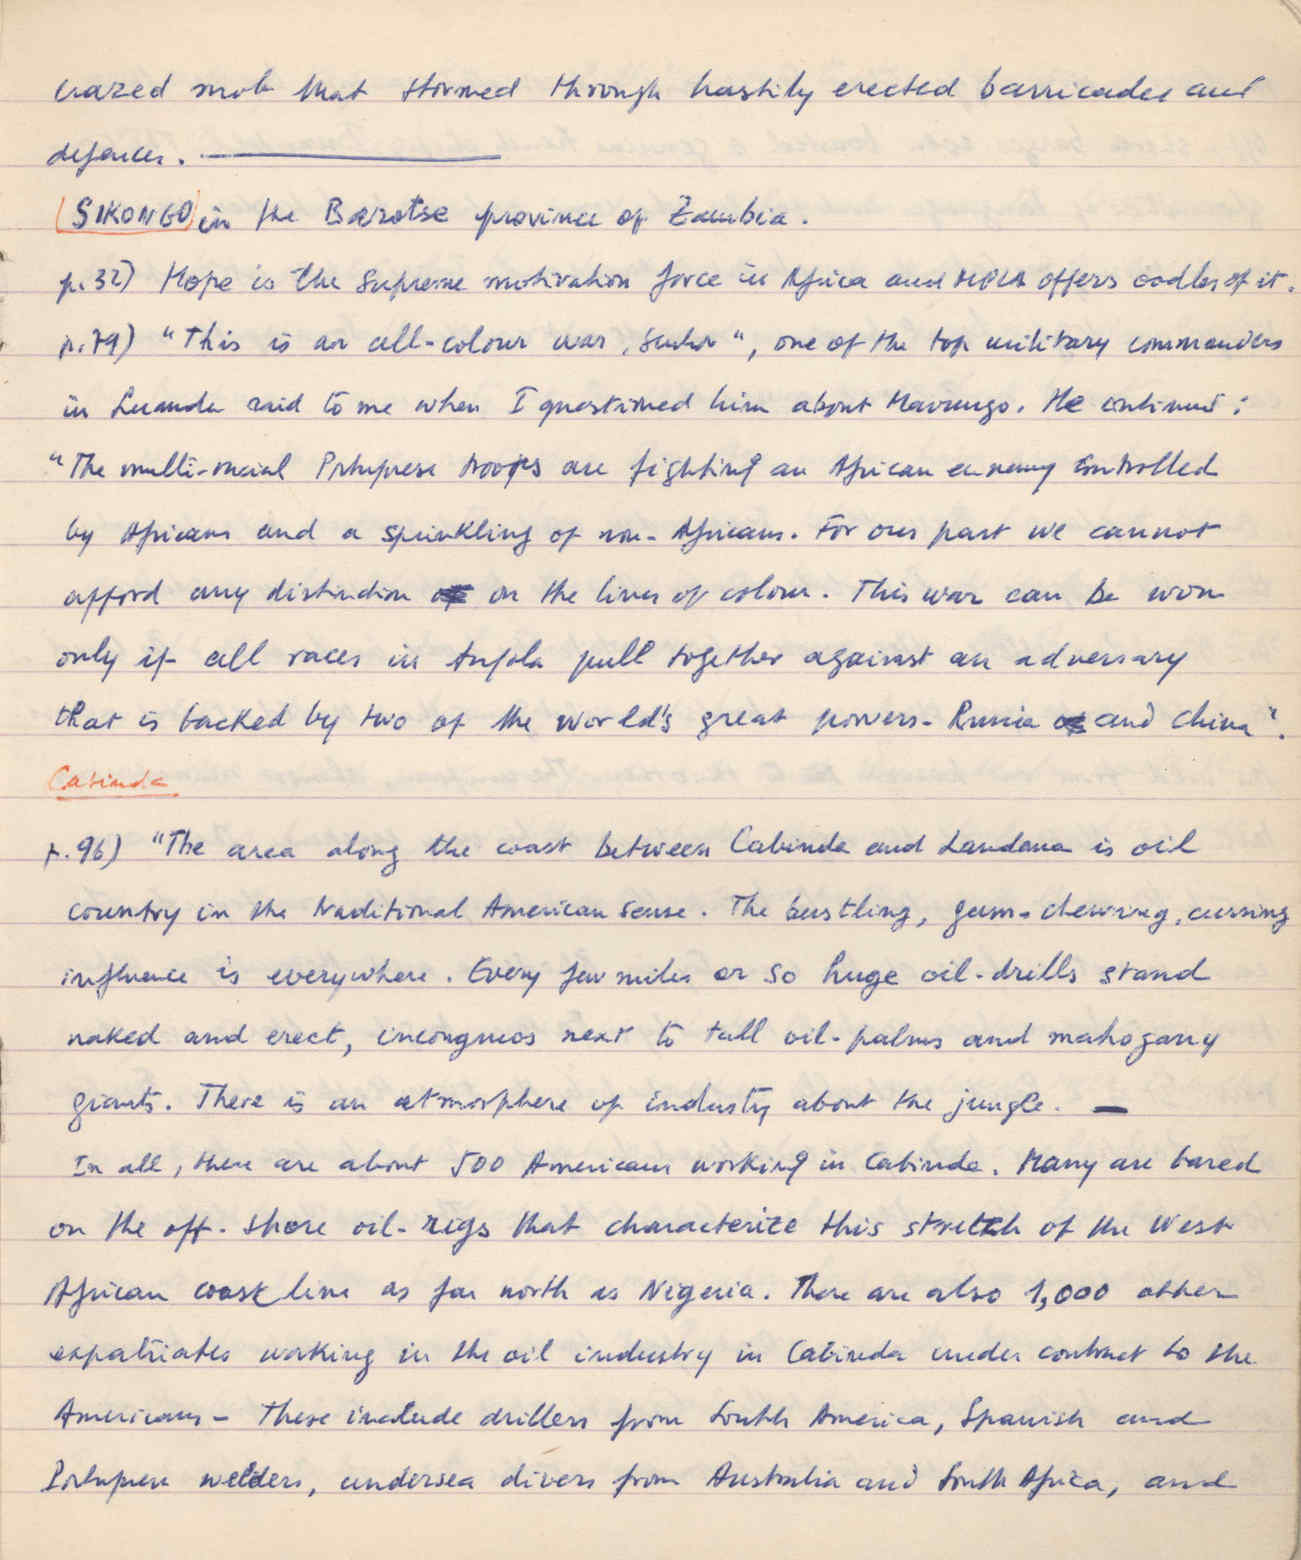 crazed mob that stormed through hastily erected barricades and
defences.
(SIKONGO) in the Barotse province of Zambia.
p.32) Hope is the supreme motivation force in Africa and MPLA offers oodles of it.
p.79) "This is an all-colour war, senhor", one of the top military commanders
in Luanda said to me when I questioned him about Mavungo. He continued:
"The multi-racial Portuguese troops are fighting an African ennemy controlled
by Africans and a sprinkling of non-Africans. For our part we cannot
afford any distinction on the lines of colour. This war can be won
only if all races in Angola pull together against an adversary
that is backed by two of the world's great powers - Russia and China".
Cabinda
p.96) "The area along the coast between Cabinda and Landana is oil
country in the traditional American sense. The bustling, gum-chewing, cursing
influence is everywhere. Every few miles or so huge oil-drills stand
naked and erect, incongruos next to tall oil-palms and mahogany
giants. There is an atmosphere of industry about the jungle. —
In all, there are about 500 Americans working in Cabinda. Many are based
on the off-shore oil-rigs that characterize this stretch of the West
African coastline as far north as Nigeria. There are also 1,000 other
expatriates working in the oil industry in Cabinda under contract to the
Americans - These include drillers from South America, Spanish and
Portuguese welders, undersea divers from Australia and South Africa, and